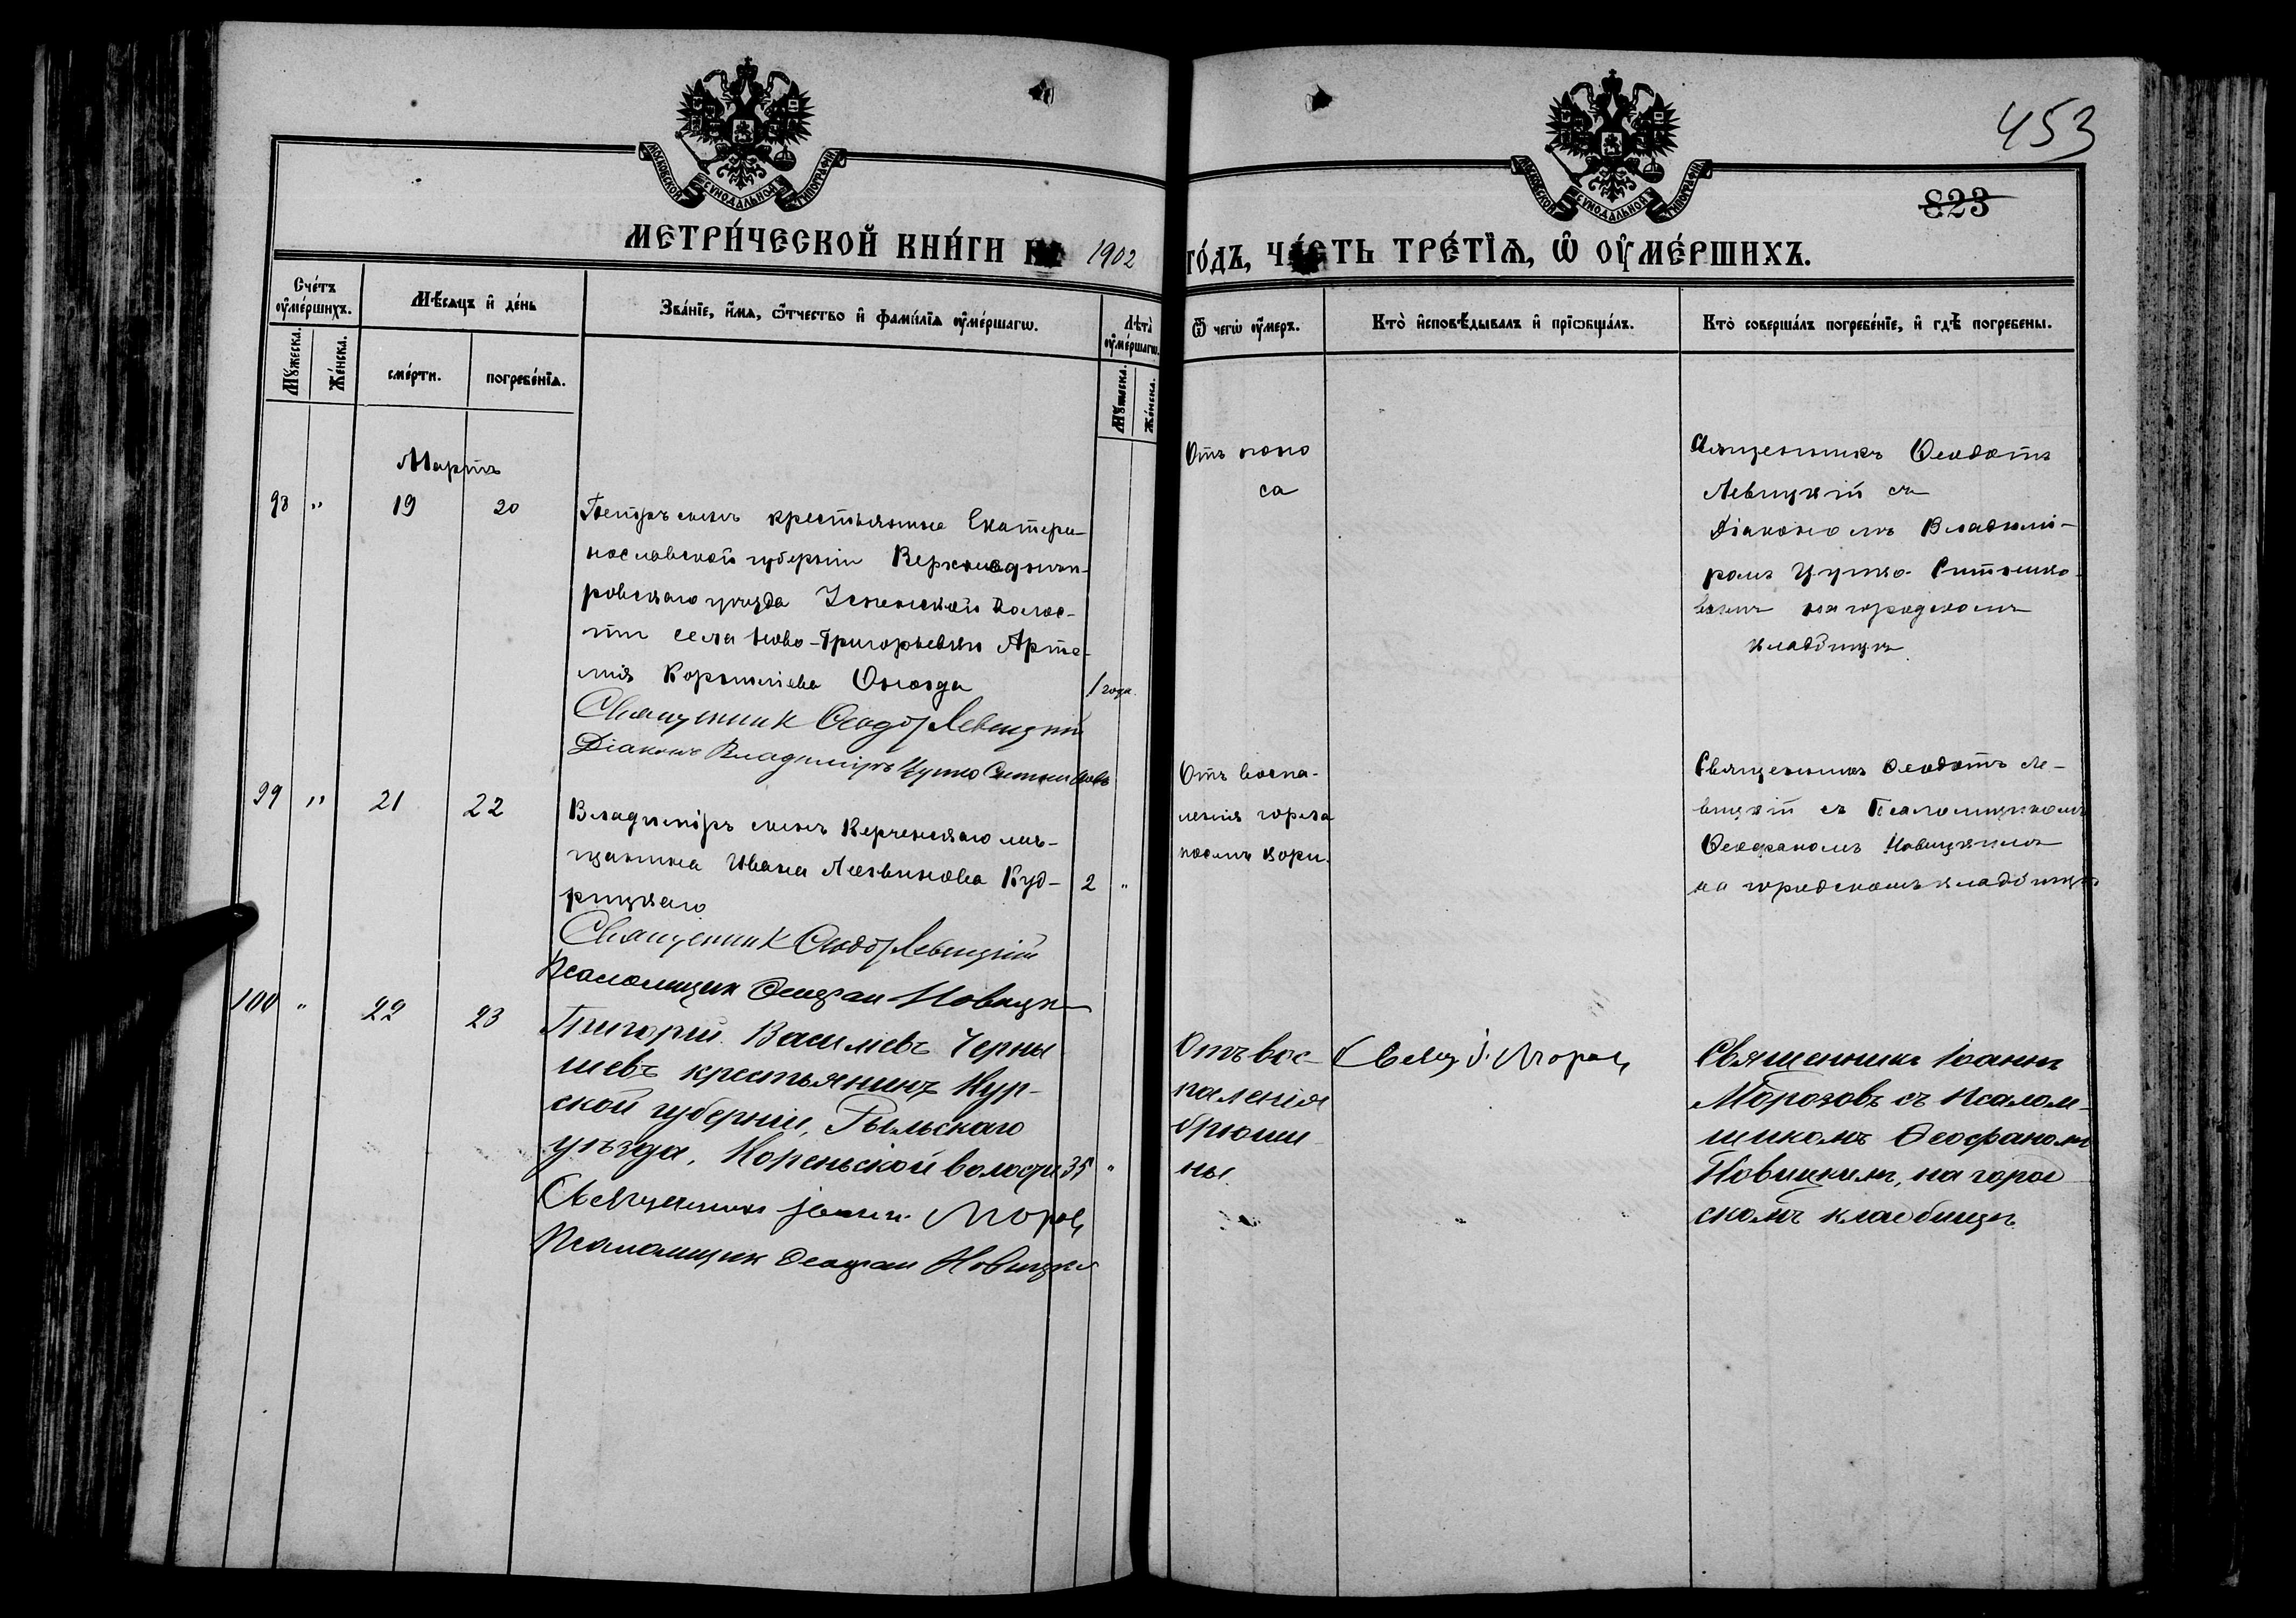 453
823
МОСКОВСКОЙ СУНОДАЛЬНОЙ ТИПОГРАФІИ
МОСКОВСКОЙ СУНОДАЛЬНОЙ ТИПОГРАФІИ
МЕТРИ́ЧЕСКОЙ КНИ́ГИ НА 1902 ГО́ДЪ, ЧА́СТЬ ТРЕ́ТІѦ, Ѡ ОУ҆МЕ́РШИХЪ.
Сче́тъ оу҆ме́ршихъ.
Мѣ́сяцъ и҆ де́нь
Зва́ніе, и҆́мѧ, ѻ҆́тчество и҆ фами́ліѧ оу҆ме́ршагѡ.
Лѣта̀ оу҆ме́ршагѡ.
Ѿ чегѡ̀ оу҆́меръ.
Кто̀ и҆сповѣ́дывалъ и҆ прїѡбща́лъ.
Кто̀ соверша́лъ погребе́ніе, и҆ гдѣ̀ погребены.
Мꙋ́жеска.
Же́нска.
сме́рти.
погребе́ніѧ.
Мꙋ́жеска.
Же́нска.
Мартъ
98 " 19 20
Петръ сынъ крестьянина Екатери-
нославской губерніи Верхнеднѣп-
ровскаго уѣзда Успенской волос-
ти села Ново-Григорьевки Арте-
мія Корниліева
1 года.
Священник Феодот Левицкій
Діаконъ Владиміръ Цушко Ситниковъ
Отъ поно
са
Священникъ Феодотъ
Левицкій съ
Діакономъ Владимі-
ромъ Цушко-Ситнико-
вымъ на городскомъ
кладбищѣ
99 " 21 22
Владиміръ сынъ Керченскаго мѣ-
щанина Ивана Логвинова Куд-
рицкаго
2 "
Священник Феодот Левицкій
Псаломщик Феофан Новицкий
Отъ воспа-
ленія горла
послѣ кори.
Священникъ Феодотъ Ле-
вицкій съ Псаломщикомъ
Феофаномъ Новицкимъ
на городскомъ кладбищѣ
100 " 22 23
Григорій Васильевъ Черны
шевъ крестьянинъ Кур-
ской губерніи, Рыльскаго
уѣзда, Кореньской волости 35 "
Священникъ Іоаннъ Мороз
Псаломщик Феофан Новицкий
Отъ вос-
паленія
брюши-
ны
Свящ. І. Мороз
Священникъ Іоаннъ
Морозовъ съ Псалом-
щикомъ Феофаномъ
Новицкимъ, на город
скомъ кладбищѣ